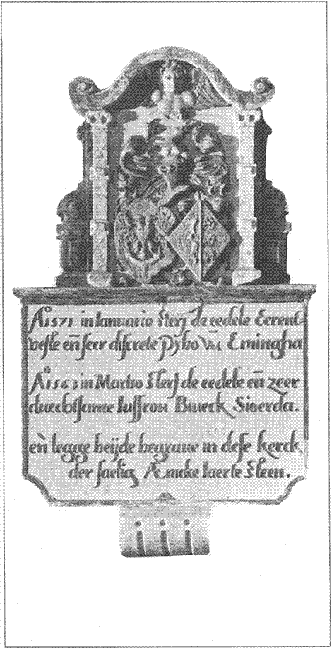 Aº 1571 in Ianuario sterf de eedele Eerent-
veste en̄ seer discrete Pybo va͞ Emingha
Aº 1563 in Martio sterf de eedele en̄ zeer
duechtsame Iuffrou Bauck Sioerda.
en̄ legge beijde begrave in dese kerck
der saelig laerte steen.